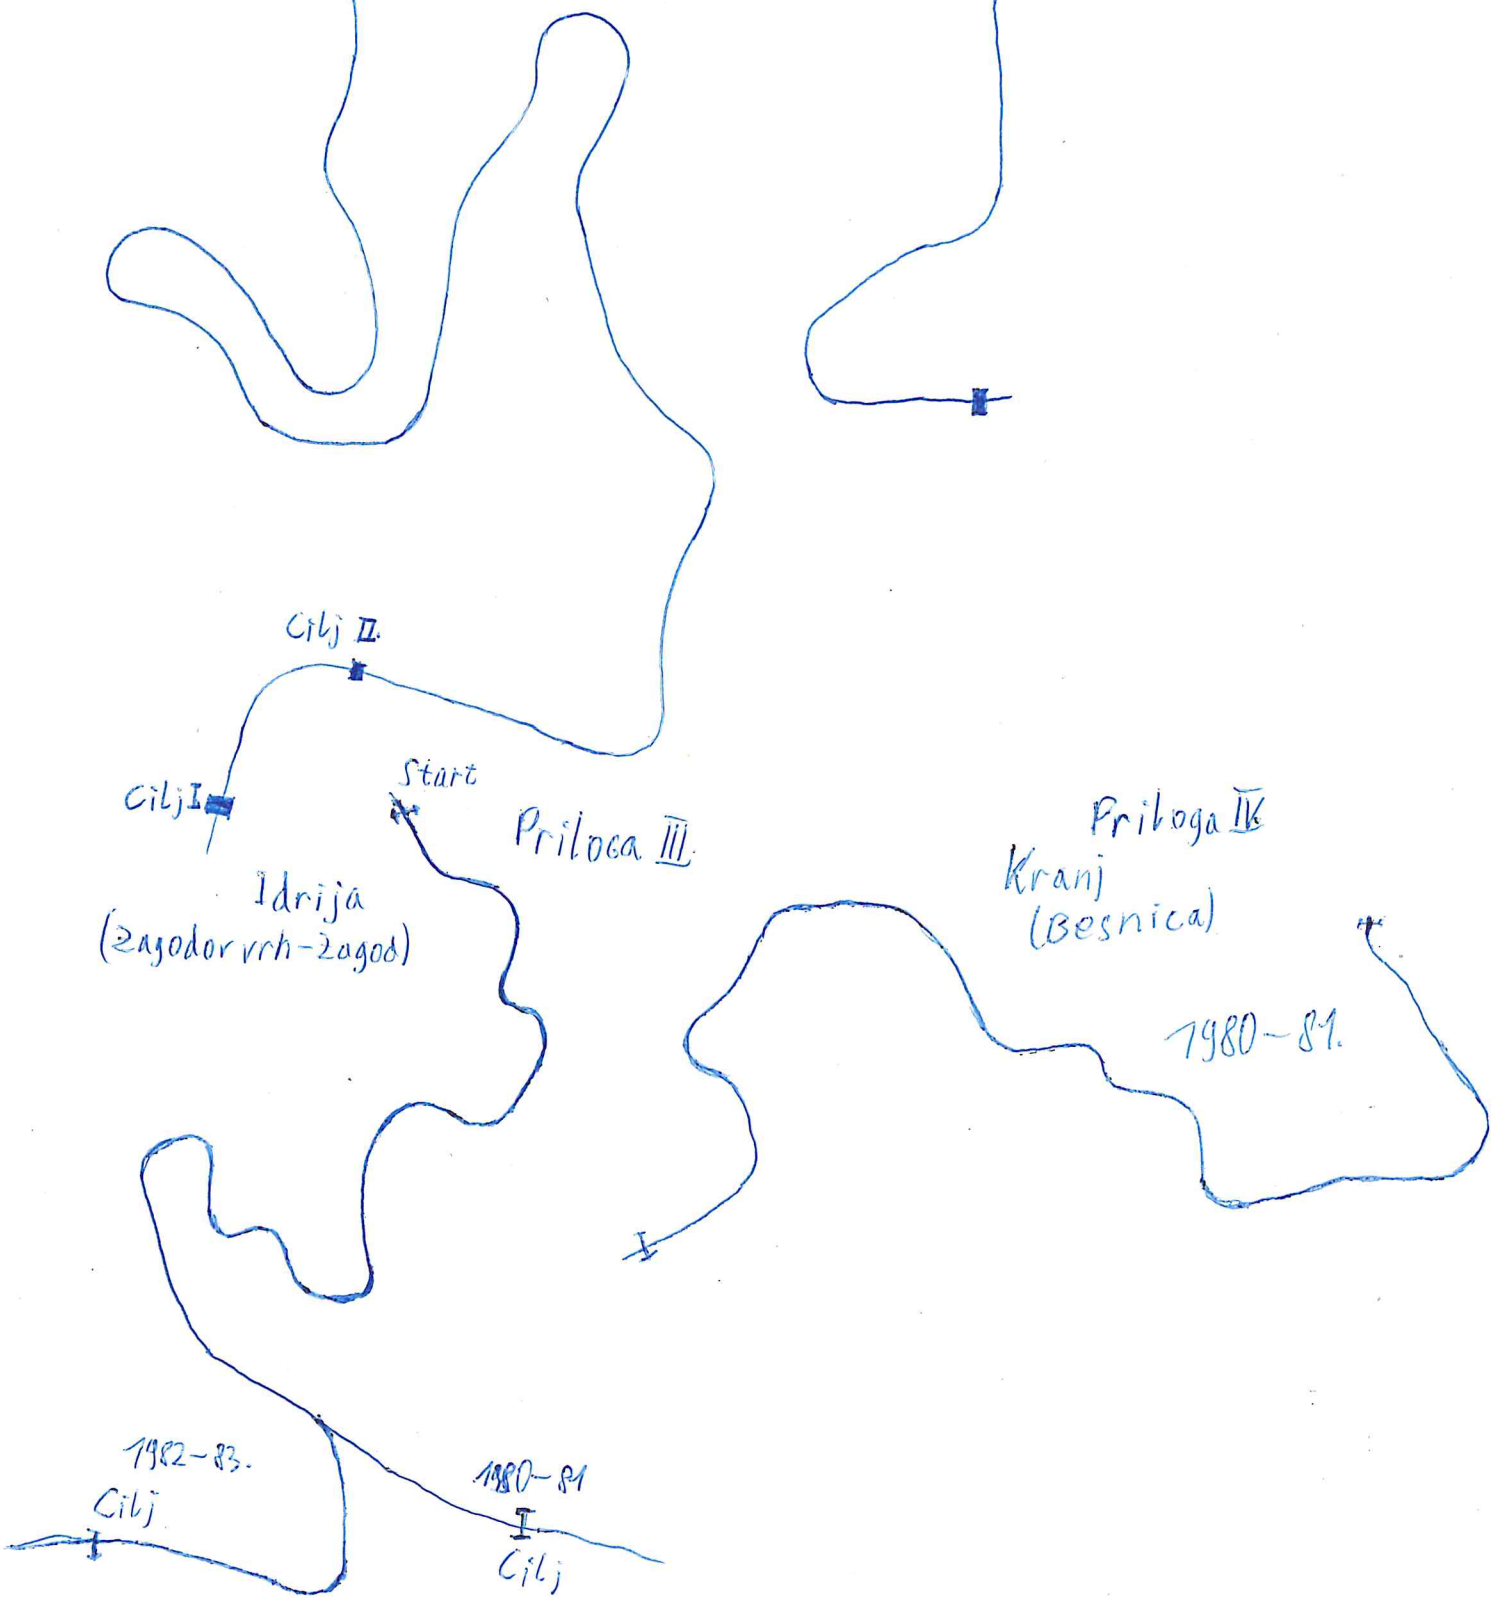 Cilj II.
Cilj I
Start
Priloga III.
Idrija
(Zagodov vrh-Zagod)
Priloga IV.
Kranj
(Besnica)
1980-81.
1982-83.
Cilj
1980-81
Cilj